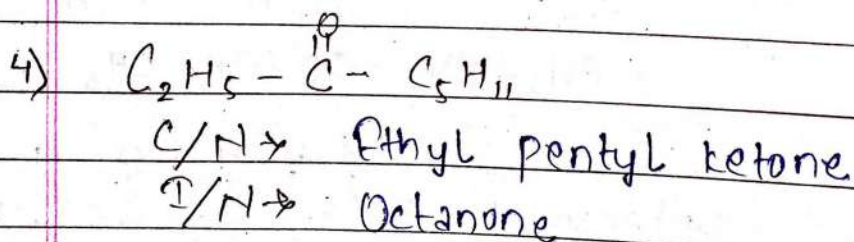 4) C₂H₅ - C(=O) - C₅H₁₁
C/N → Ethyl pentyl ketone
I/N → Octanone